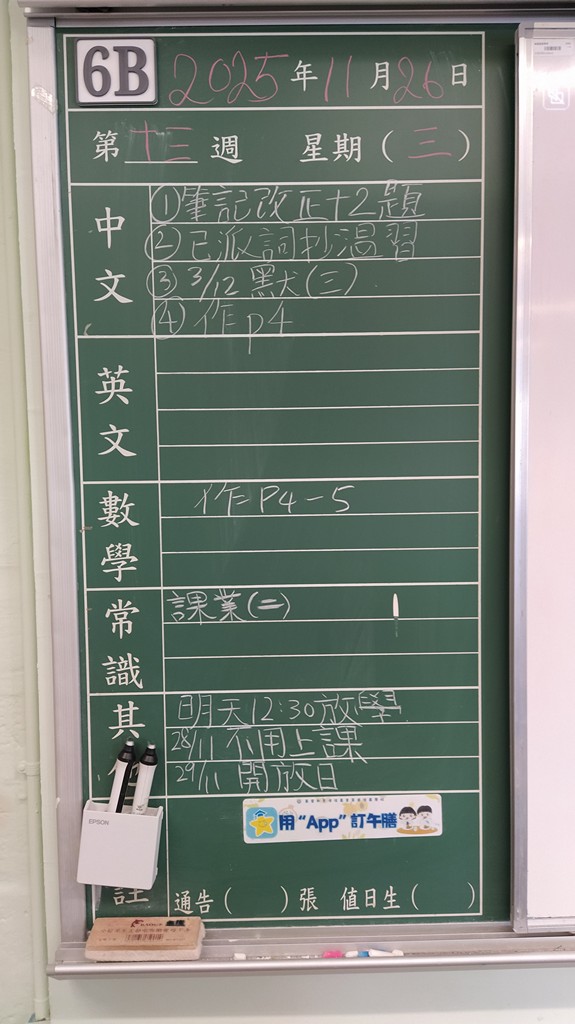 6B 2025年11月26日
第十三週 星期(三)
中文
①筆記改正+2題
②已派詞抄溫習
③3/12 默(三)
④作p4
英文
數學
作P4-5
常識
課業(二)
其
明天12:30放學
28/11 不用上課
29/11 開放日
EPSON
用“App”訂午膳
註
通告( )張 值日生( )